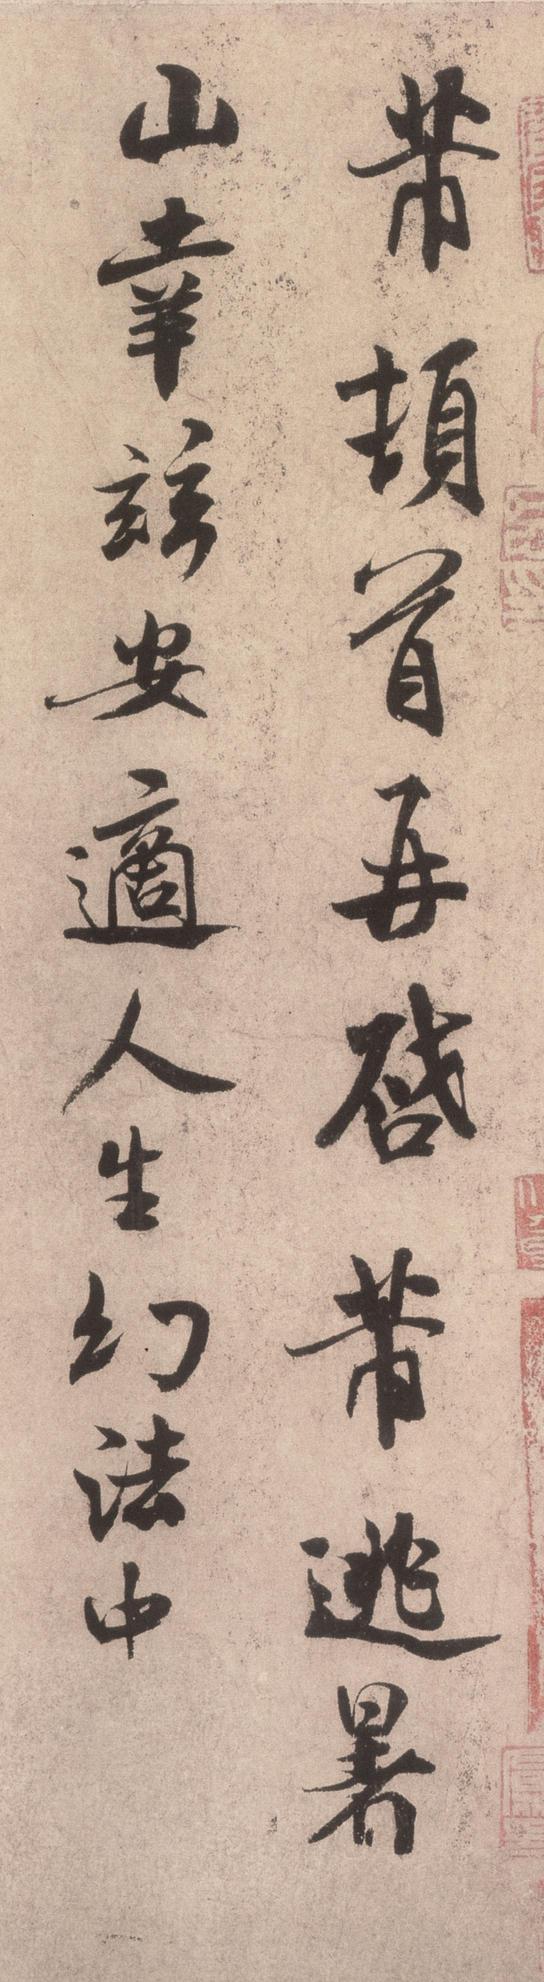 芾頓首再啓芾逃暑
山幸兹安適人生幻法中